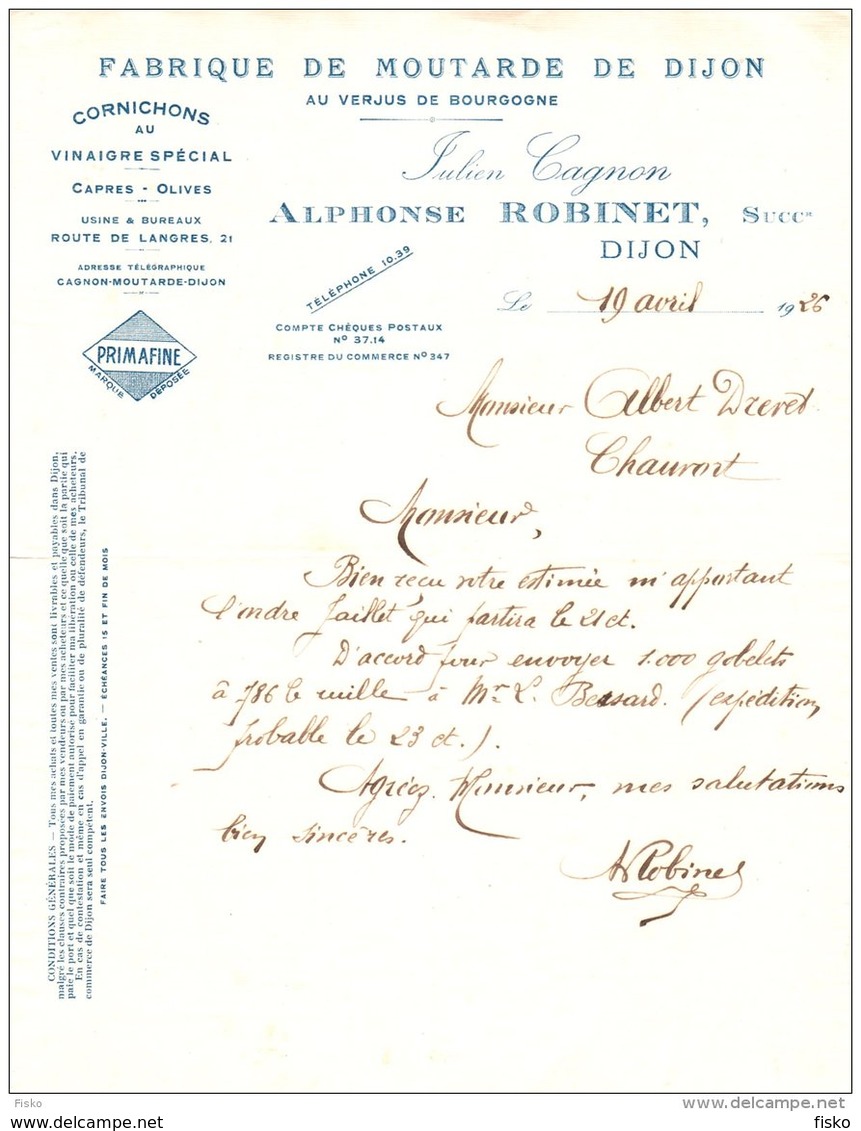 FABRIQUE DE MOUTARDE DE DIJON
AU VERJUS DE BOURGOGNE
CORNICHONS
AU
VINAIGRE SPÉCIAL
CAPRES - OLIVES
USINE & BUREAUX
ROUTE DE LANGRES, 21
ADRESSE TÉLÉGRAPHIQUE
CAGNON-MOUTARDE-DIJON
PRIMAFINE
MARQUE DÉPOSÉE
Julien Cagnon
ALPHONSE ROBINET, SUCCR
DIJON
TÉLÉPHONE 10.39
COMPTE CHÈQUES POSTAUX
No 37.14
REGISTRE DU COMMERCE No 347
Le 19 avril 1926
Monsieur Albert Drevet
Chauvort
Monsieur,
Bien reçu votre estimée m'apportant
l'ordre Jaillet qui partira le 21 ct.
D'accord pour envoyer 1.000 gobelets
à 786 le mille à Mr L. Bessard. (expédition
probable le 23 ct.).
Agréez, Monsieur, mes salutations
bien sincères.
A Robinet
CONDITIONS GÉNÉRALES. — Tous mes achats et toutes mes ventes sont livrables et payables dans Dijon,
malgré les clauses contraires proposées par mes vendeurs ou par mes acheteurs et ce quelle que soit la partie qui
paie le port et quel que soit le mode de paiement autorisé pour faciliter ma libération ou celle de mes acheteurs.
En cas de contestation et même en cas d'appel en garantie ou de pluralité de défendeurs, le Tribunal de
commerce de Dijon sera seul compétent.
FAIRE TOUS LES ENVOIS DIJON-VILLE. — ÉCHÉANCES 15 ET FIN DE MOIS
Fisko
www.delcampe.net
www.delcampe.net
fisko